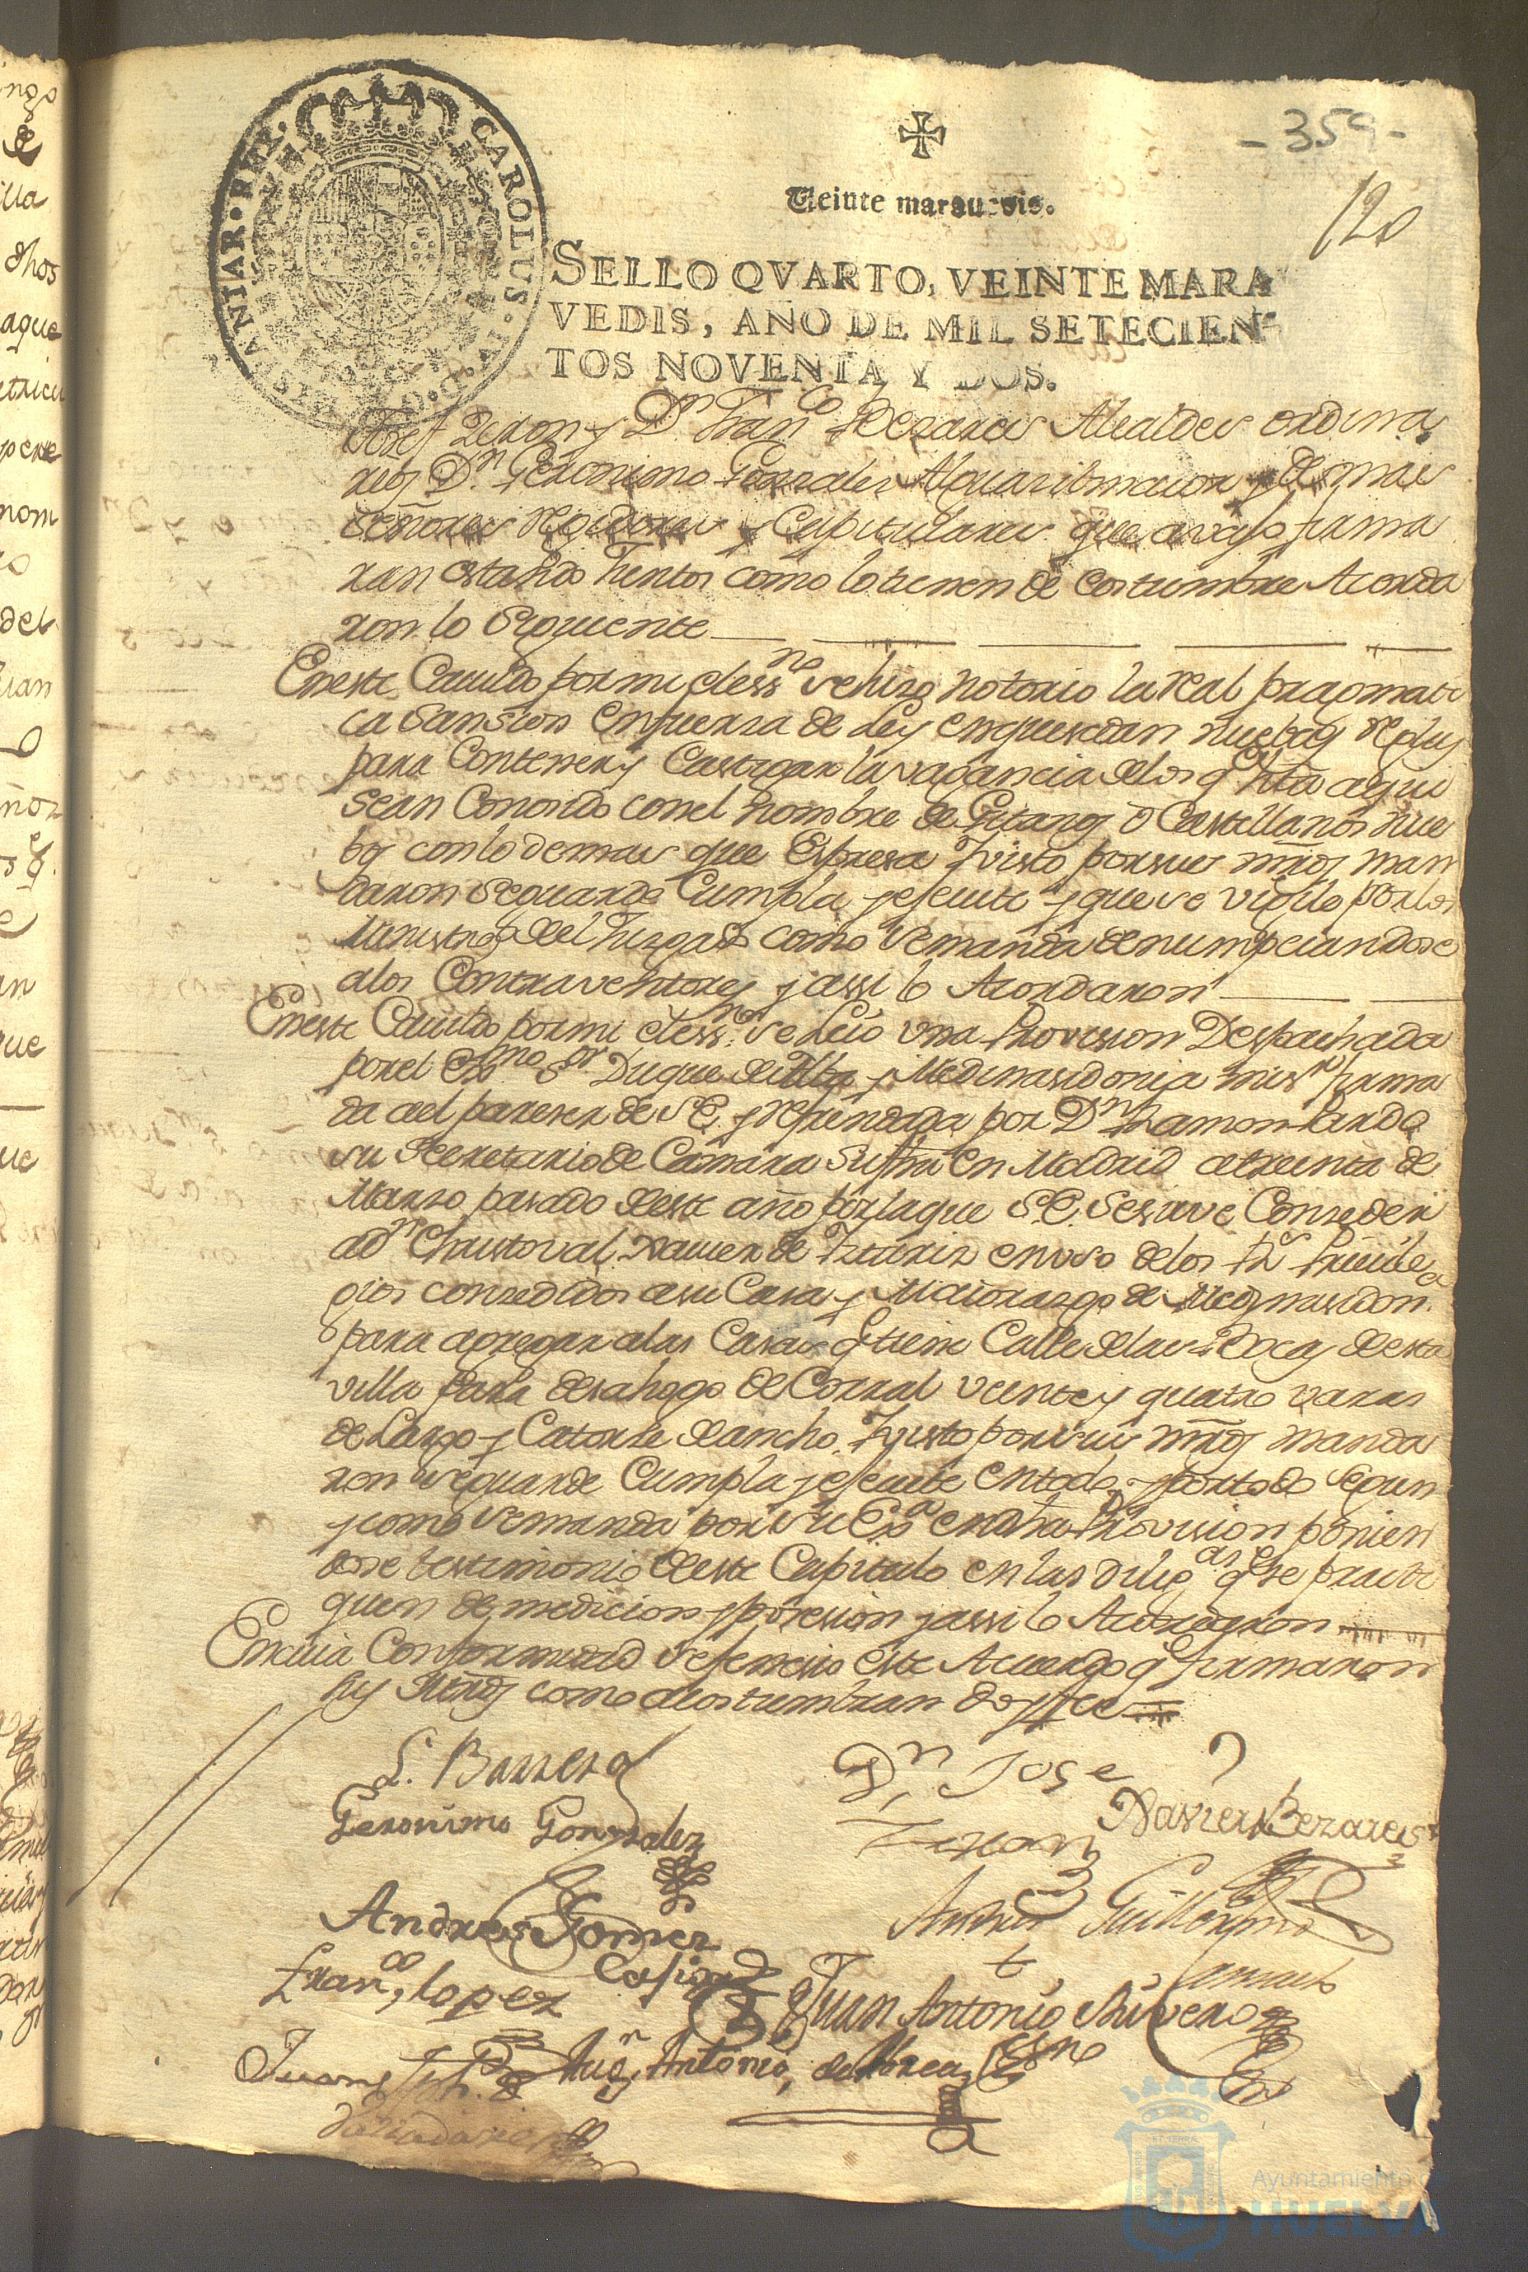 -359-
120
HISPANIAR·REX. CAROLUS·IV·D·G·
Veinte marauedis.
SELLO QVARTO, VEINTE MARA
VEDIS, AÑO DE MIL SETECIEN
TOS NOVENTA Y DOS.
Josef Zeron y Dn Franco Bezares Alcaldes ordina
rios Dn Geronimo Gonzales Alguasilmaior y demas
señores Regidores y Capitulares que avajo firma
ran estando Juntos como lo tienen de costumbre Acorda
ron lo Siguiente
Eneste Cavildo por mi el essno se hizo notorio la real pragmati
ca Sansion enfuersa de Ley enquesedan nuebas Reglas
para Contener y Castigar la vagancia delos q hta aqui
sean Conosido conel nombre de Gitanos ô Castellanos nue
bos conlo demas que Espresa Yvisto porsus mrds man
daron Seguarde Cumpla y esecute y que se vigile porlos
Ministros del Juzgado como se manda denumpciandose
alos Contraventores y assi lo Acordaron
Eneste Cavildo pormi el essno se Leio una Provision Despachada
porel Exmo Sor Duque de Alba y Medinasidonia mi sr firma
da del pareser de S.E. y refrendada por Dn Ramon Pardo
su Secretario de Camara Su fha en Madrid atreinta de
Marso pasado deste año porlaque S.E. Sesirve Conseder
a Dn Christoval Xavier de Yztariz enuso delos Rs Privile
gios consedidos asu Casa y Maiorasgo de Medinasidona
para agregar alas Casas q tiene Calle delas Bocas desta
villa para desahogo de Corral veinte y quatro varas
de Largo y Catorse deancho. Yvisto porsus mrds manda
ron seguarde Cumpla y esecute entodo y portodo segun
y como semanda por su Exa en dha Provision ponien
dose testimonio deeste Capitulo enlas diligas q se practi
quen de medicion y posesion y assi lo Acordaron
Encuia Conformidad sefenesio este Acuerdo q firmaron
sus Mrds como acostumbran doy fee
L. Barrera
Dn Jose
Zeron
Xavier Bezares
Geronimo Gonzalez
Andres Gomez
Andres Guillermo
Franco Lopez
Juan Antonio Rivero
Juan
Antonio de
Essno
Ayuntamiento de
HUELVA